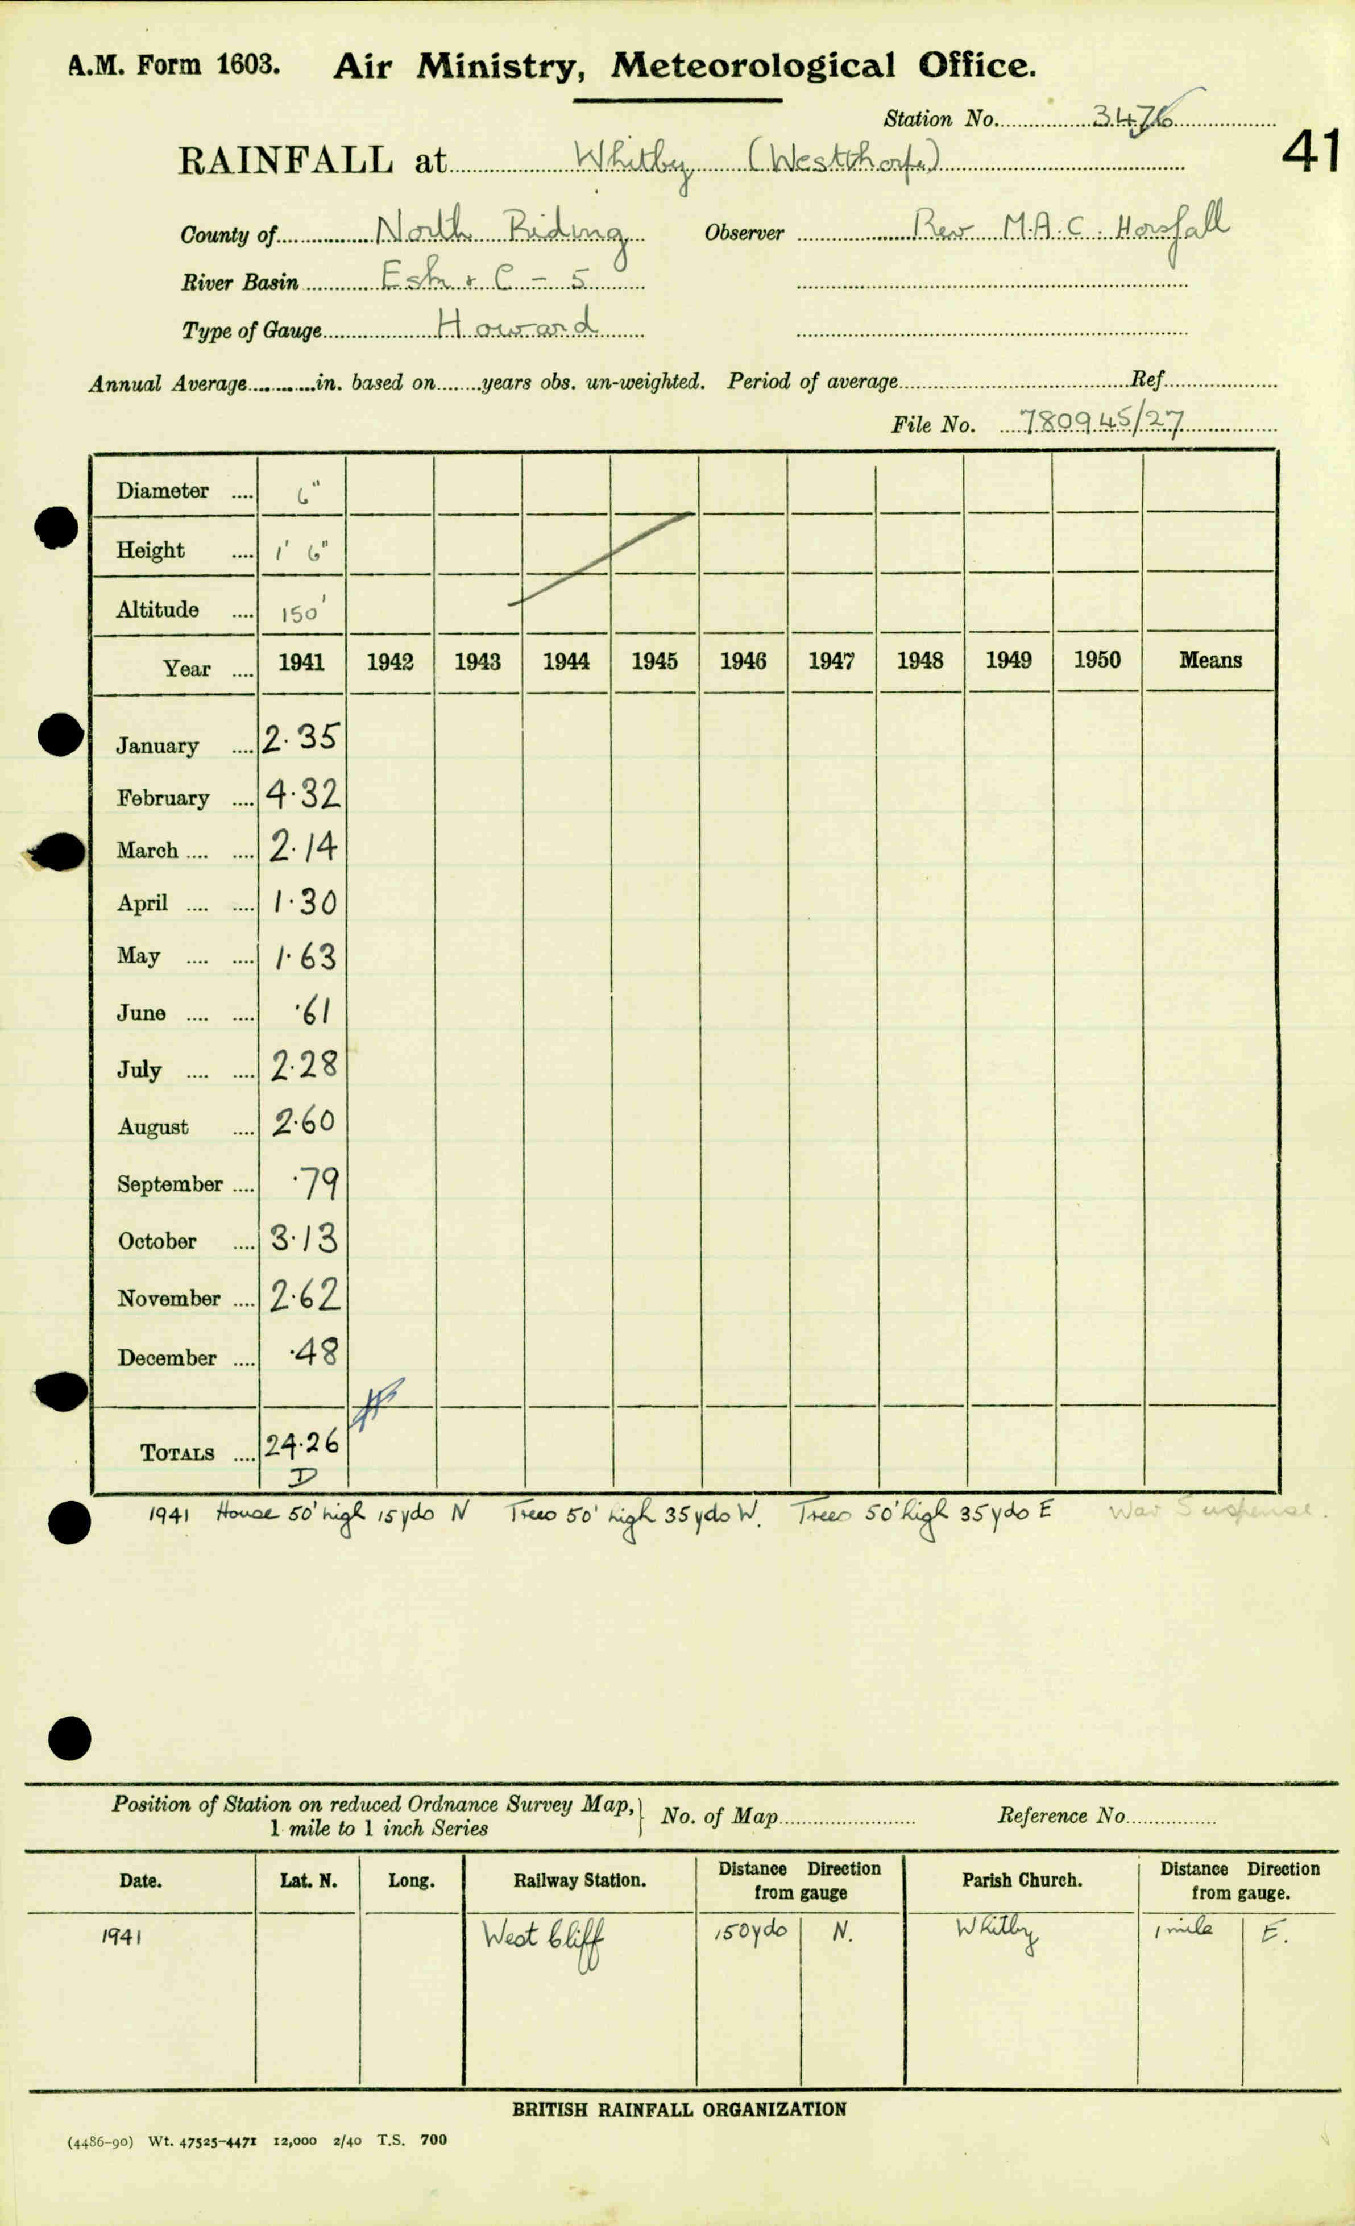 A.M. Form 1603. Air Ministry, Meteorological Office.
Station No. 3476
41
RAINFALL at Whitby (Westthorpe)
County of North Riding Observer Rev M.A.C. Horsfall
River Basin Esk + C - 5
Type of Gauge Howard
Annual Average in. based on years obs. un-weighted. Period of average Ref
File No. 780945/27
Diameter .... 6"
Height .... 1' 6"
Altitude .... 150'
Year .... 1941 1942 1943 1944 1945 1946 1947 1948 1949 1950 Means
January .... 2.35
February .... 4.32
March .... .... 2.14
April .... .... 1.30
May .... .... 1.63
June .... .... .61
July .... .... 2.28
August .... 2.60
September .... .79
October .... 3.13
November .... 2.62
December .... .48
TOTALS .... 24.26
D
1941 House 50' high 15 yds N Trees 50' high 35 yds W. Trees 50' high 35 yds E War Suspense.
Position of Station on reduced Ordnance Survey Map, 1 mile to 1 inch Series } No. of Map Reference No.
Date. Lat. N. Long. Railway Station. Distance Direction from gauge Parish Church. Distance Direction from gauge.
1941 West Cliff 150 yds N. Whitby 1 mile E.
BRITISH RAINFALL ORGANIZATION
(4486-90) Wt. 47525-4471 12,000 2/40 T.S. 700